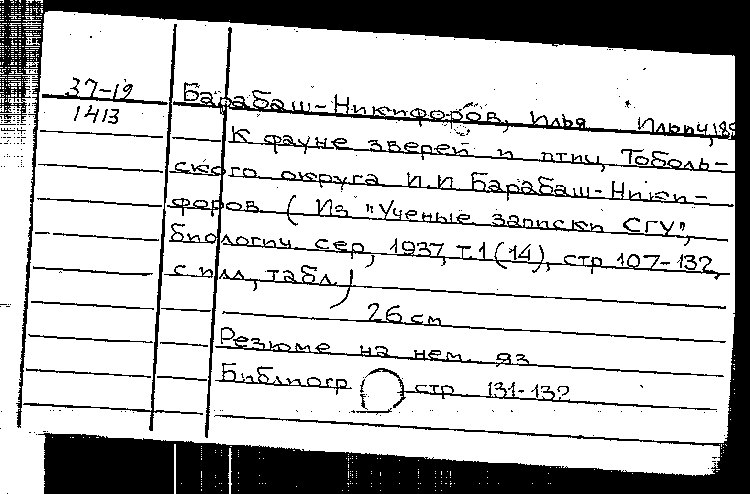 37-19
1413
Барабаш-Никифоров, Илья Ильич, 189
К фауне зверей и птиц Тоболь-
ского округа И.И Барабаш-Ники-
форов (Из "Ученые записки СГУ",
биологич. сер, 1937, т.1(14), стр 107-132,
с илл, табл)
26 см
Резюме на нем. яз
Библиогр стр 131-132